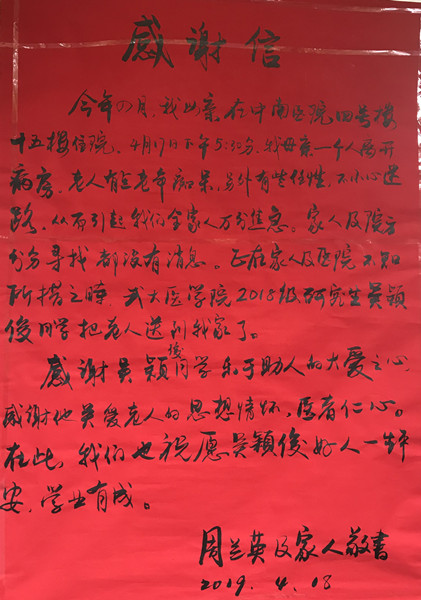 感谢信
今年四月，我母亲在中南医院四号楼
十五楼住院，4月17日下午5:30分，我母亲一个人离开
病房，老人有些老年痴呆，另外有些任性，不小心迷
路，从而引起我们全家人万分焦急。家人及院方
分分寻找都没有消息。正在家人及医院不知
所措之时，武大医学院2018级研究生吴颖
俊同学把老人送到我家了。
感谢吴颖俊同学乐于助人的大爱之心，
感谢他关爱老人的思想情怀，医者仁心。
在此，我们也祝愿吴颖俊好人一生平
安，学业有成。
周兰英及家人敬书
2019.4.18